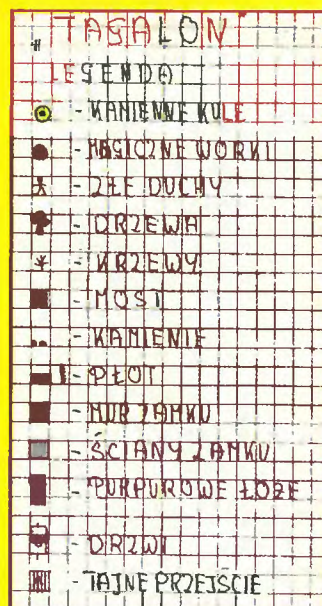 "TAGALON"
LEGENDA
- KAMIENNE KULE
- MAGICZNE WORKI
- ZŁE DUCHY
- DRZEWA
- KRZEWY
- MOST
- KAMIENIE
- PŁOT
- MUR ZAMKU
- ŚCIANY ZAMKU
- PURPUROWE ŁOŻE
- DRZWI
- TAJNE PRZEJŚCIE